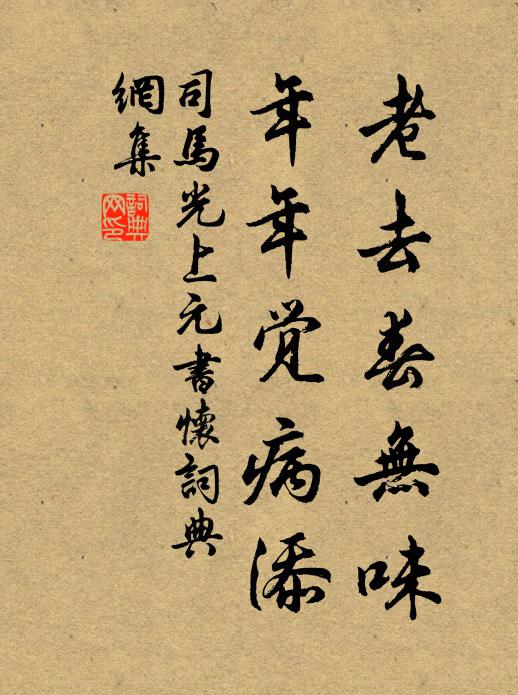 老去春無味
年年覚病添
司馬光上元書懷詞典
網集
詞典网印